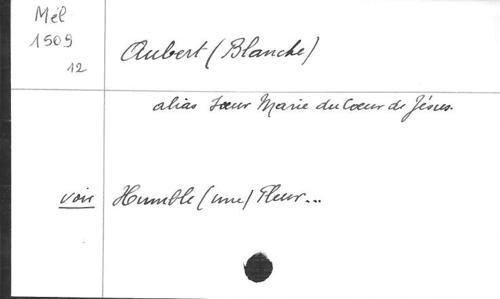 Mél
1509
12
Aubert (Blanche)
alias Soeur Marie du Coeur de Jésus.
voir Humble (une) Fleur...